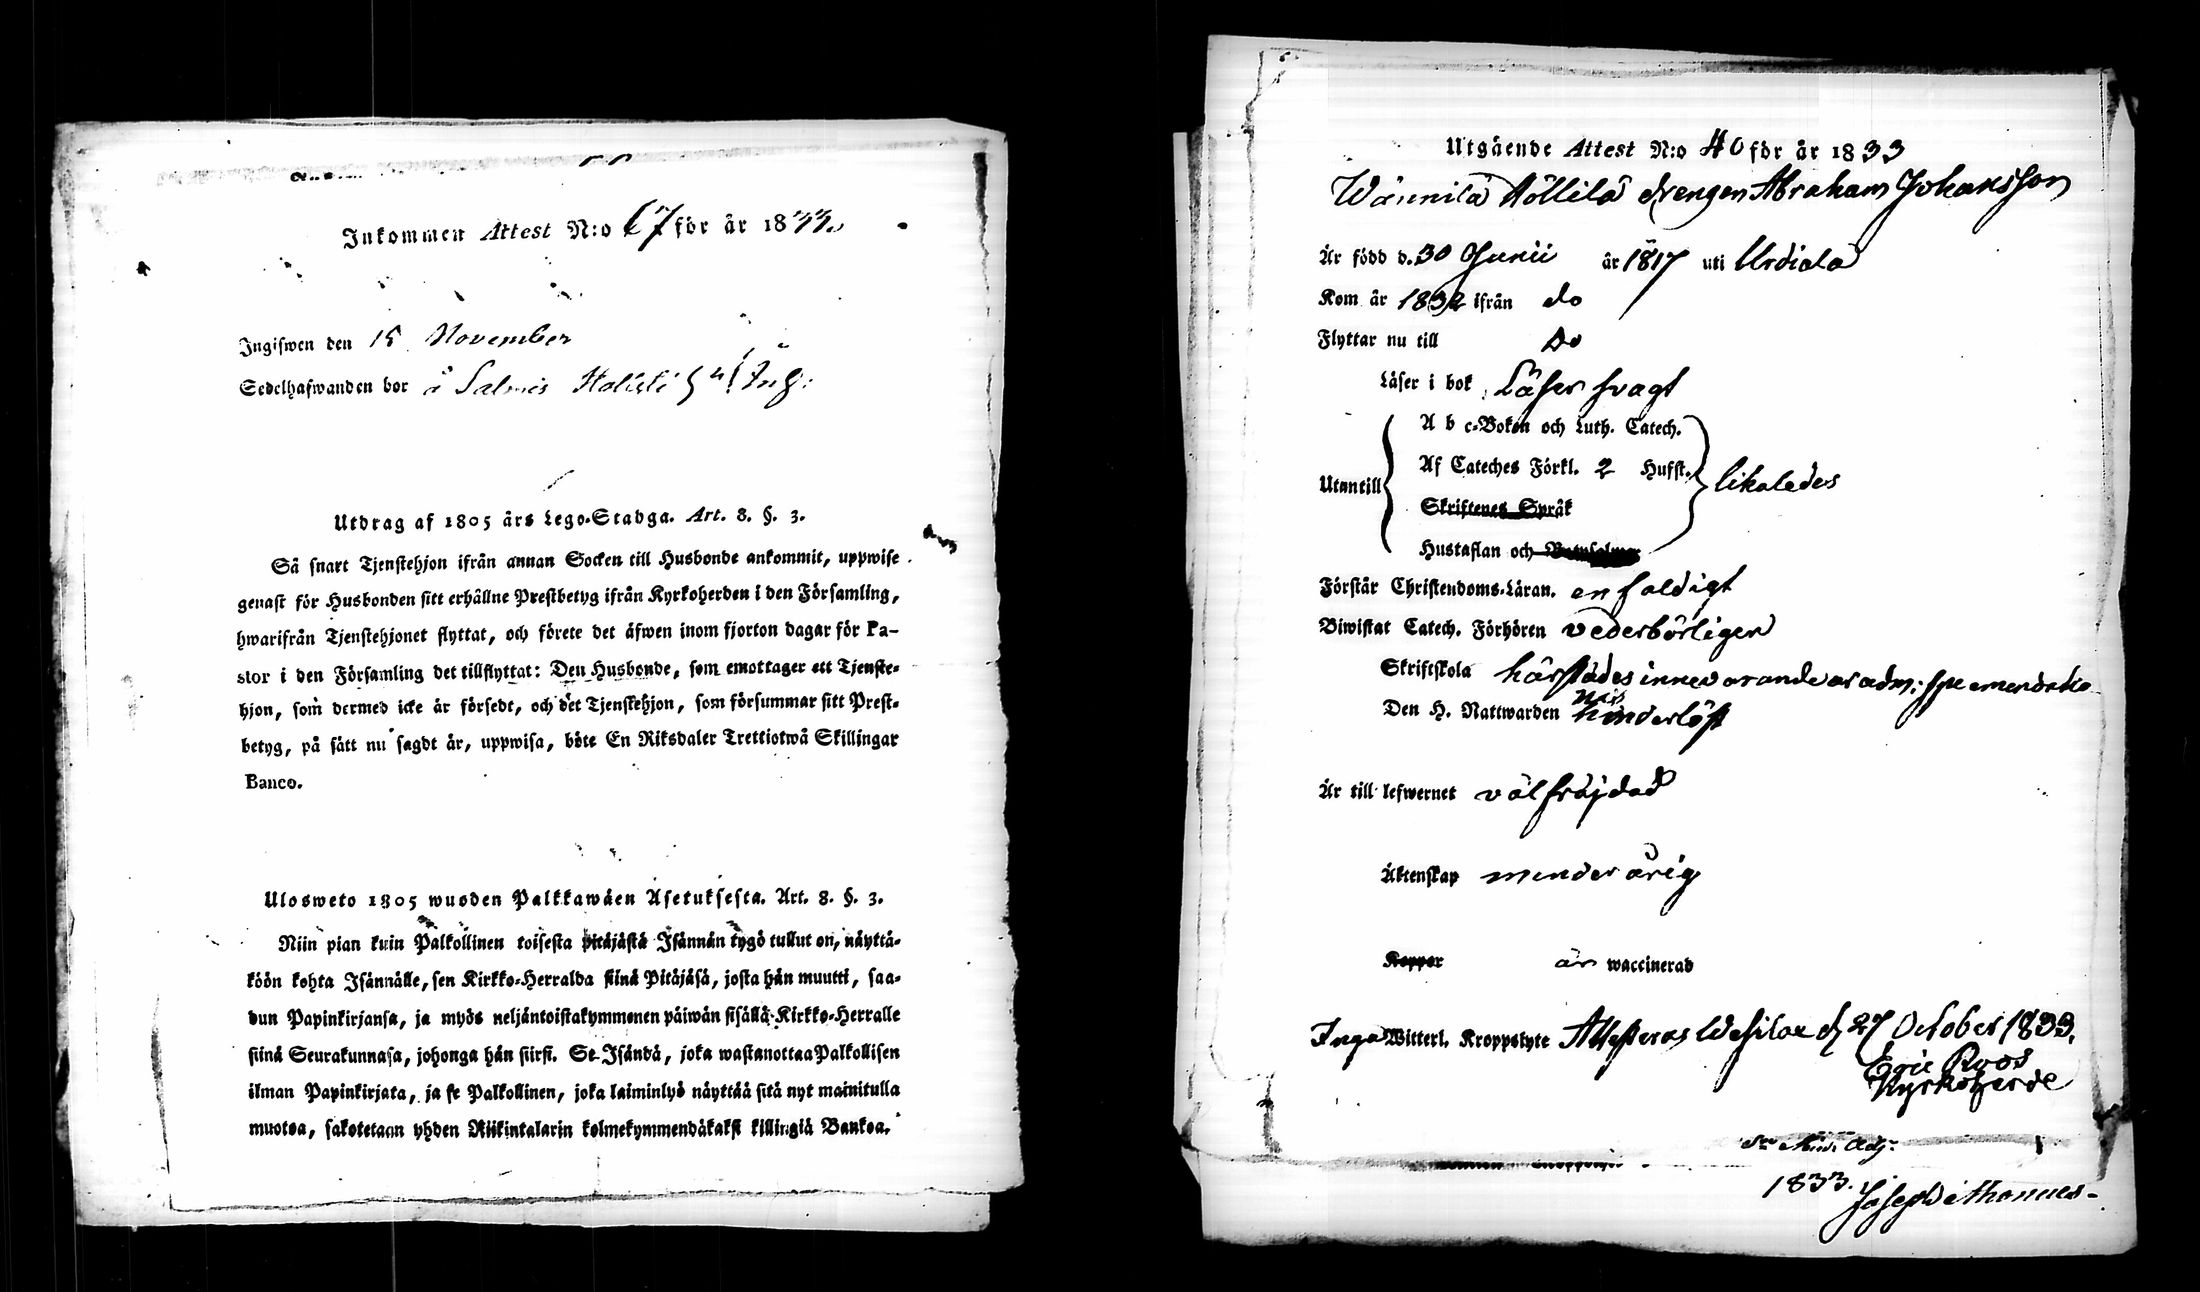 Inkommen Attest N:o 67 för år 1833.
Ingifwen den 15 November
Sedelhafwanden bor å Salmis
Utdrag af 1805 års Lego-Stadga. Art. 8. §. 3.
Så snart Tjenstehjon ifrån annan Socken till Husbonde ankommit, uppwise
genast för Husbonden sitt erhållne Prestbetyg ifrån Kyrkoherden i den Församling,
hwarifrån Tjenstehjonet flyttat, och förete det äfwen inom fjorton dagar för Pa-
stor i den Församling det tillflyttat: Den Husbonde, som emottager ett Tjenste-
hjon, som dermed icke är försedt, och det Tjenstehjon, som försummar sitt Prest-
betyg, på sätt nu sagdt är, uppwisa, böte En Riksdaler Trettiotwå Skillingar
Banco.
Ulosweto 1805 wuoden Palkkawäen Asetuksesta. Art. 8. §. 3.
Niin pian kuin Palkollinen toisesta pitäjästä Isännän tygö tullut on, näyttä-
köön kohta Isännälle, sen Kirkko-Herralda siinä Pitäjäsä, josta hän muutti, saa-
dun Papinkirjansa, ja myös neljäntoistakymmenen päiwän sisällä Kirkko-Herralle
siinä Seurakunnasa, johonga hän siirsi. Se Isändä, joka wastanottaa Palkollisen
ilman Papinkirjata, ja se Palkollinen, joka laiminlyö näyttää sitä nyt mainitulla
muotoa, sakotetaan yhden Riikintalarin kolmekymmendäkaksi killingiä Bankoa.
Utgående Attest N:o 40 för år 1833
Wännilä Höllilä drengen Abraham Johansson
Är född d. 30 Junii år 1817 uti Urdiala
Kom år 1832 ifrån do
Flyttar nu till Do
Läser i bok Läser svagt
A b c-Boken och Luth. Catech.
Af Cateches Förkl. 2 Hufst.
Utantill likaledes
Skriftenes Språk
Hustaflan och Botpsalmer
Förstår Christendoms-Läran. enfaldigt
Biwistat Catech. Förhören vederbörligen
Skriftskola härstädes innevarande år adm: spe emendatio
Den H. Nattwarden hinderlöst
Är till lefwernet välfräjdad
Äktenskap minderårig
Koppor är waccinerad
Inga Witterl. Kroppslyte Attesteras Wesilax d 27 October 1833.
Eric Roos
Kyrkoherde
Adj:
1833.